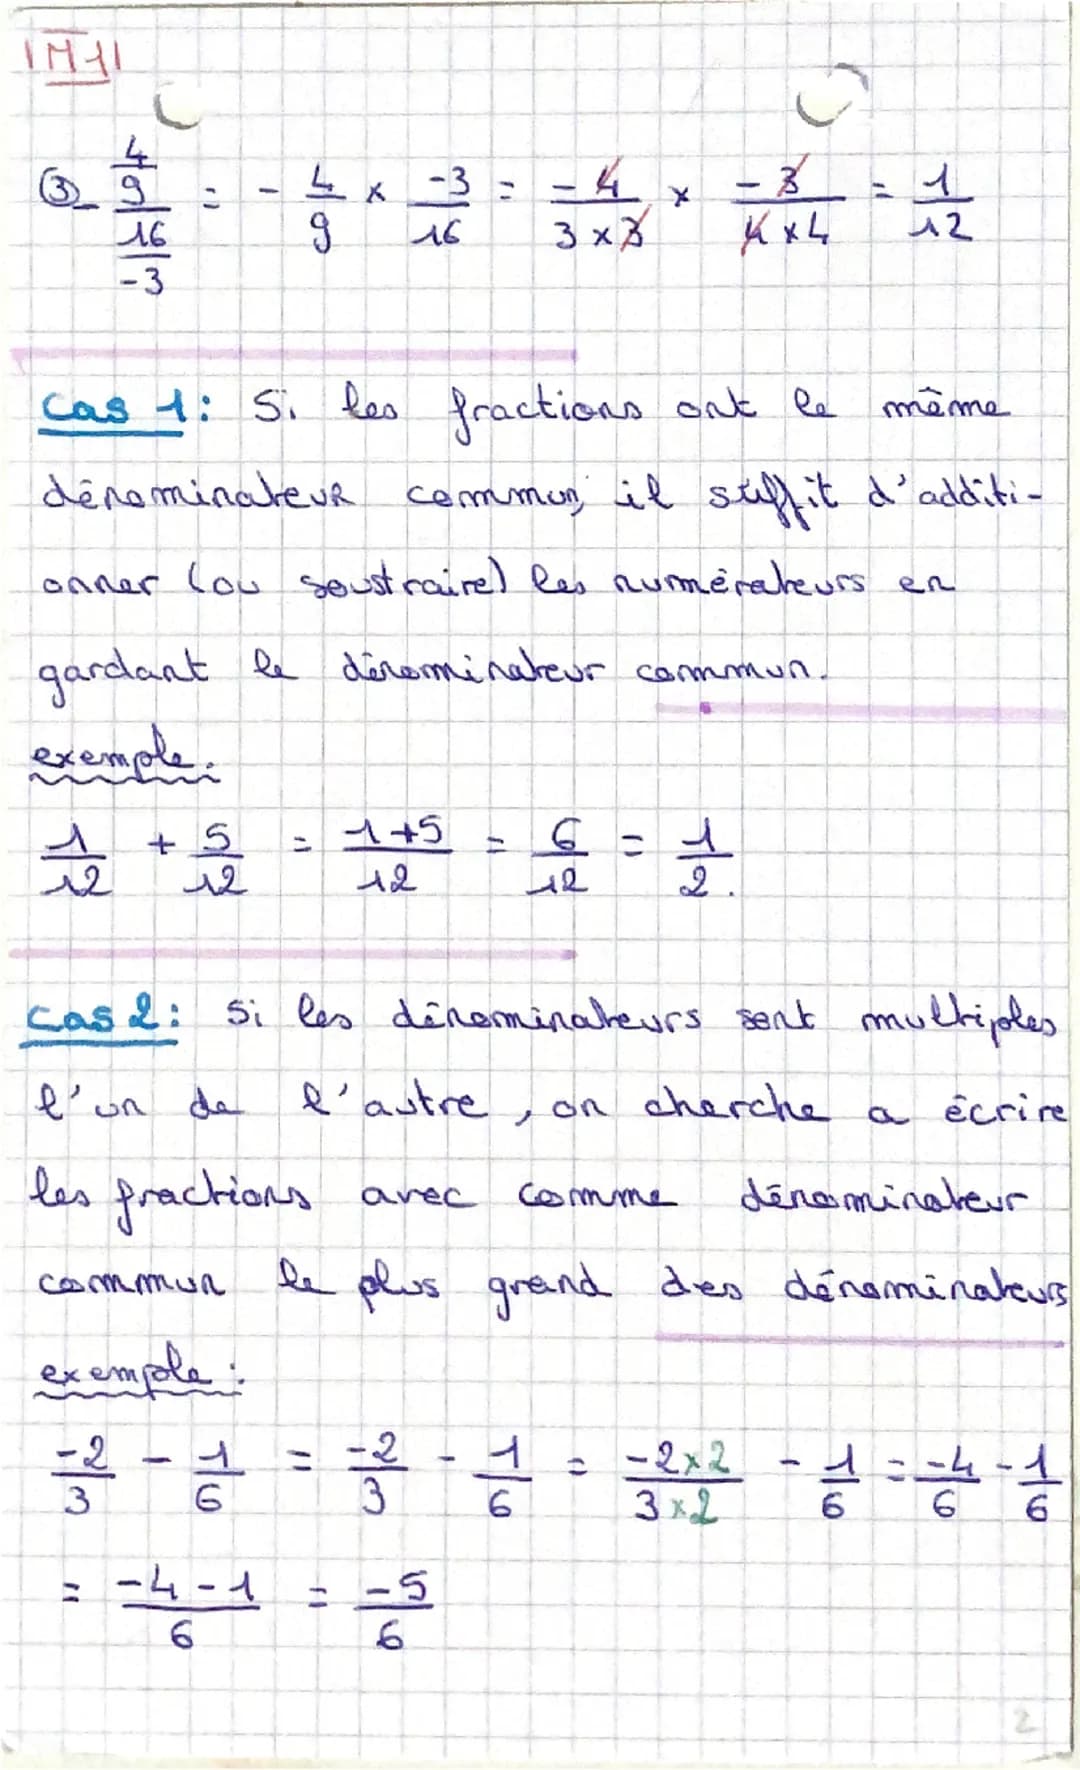 |M1|
③ - 4/9 / 16/-3 = - 4/9 × -3/16 = -4/3×3 × -3/4×4 = 1/12
cas 1: Si les fractions ont le même
dénominateur commun, il suffit d'additi-
onner (ou soustraire) les numérateurs en
gardant le dénominateur commun.
exemple:
1/12 + 5/12 = 1+5/12 = 6/12 = 1/2.
cas 2: Si les dénominateurs sont multiples
l'un de l'autre, on cherche a écrire
les fractions avec comme dénominateur
commun le plus grand des dénominateurs
exemple:
-2/3 - 1/6 = -2/3 - 1/6 = -2×2/3×2 - 1/6 = -4/6 - 1/6
= -4-1/6 = -5/6
2